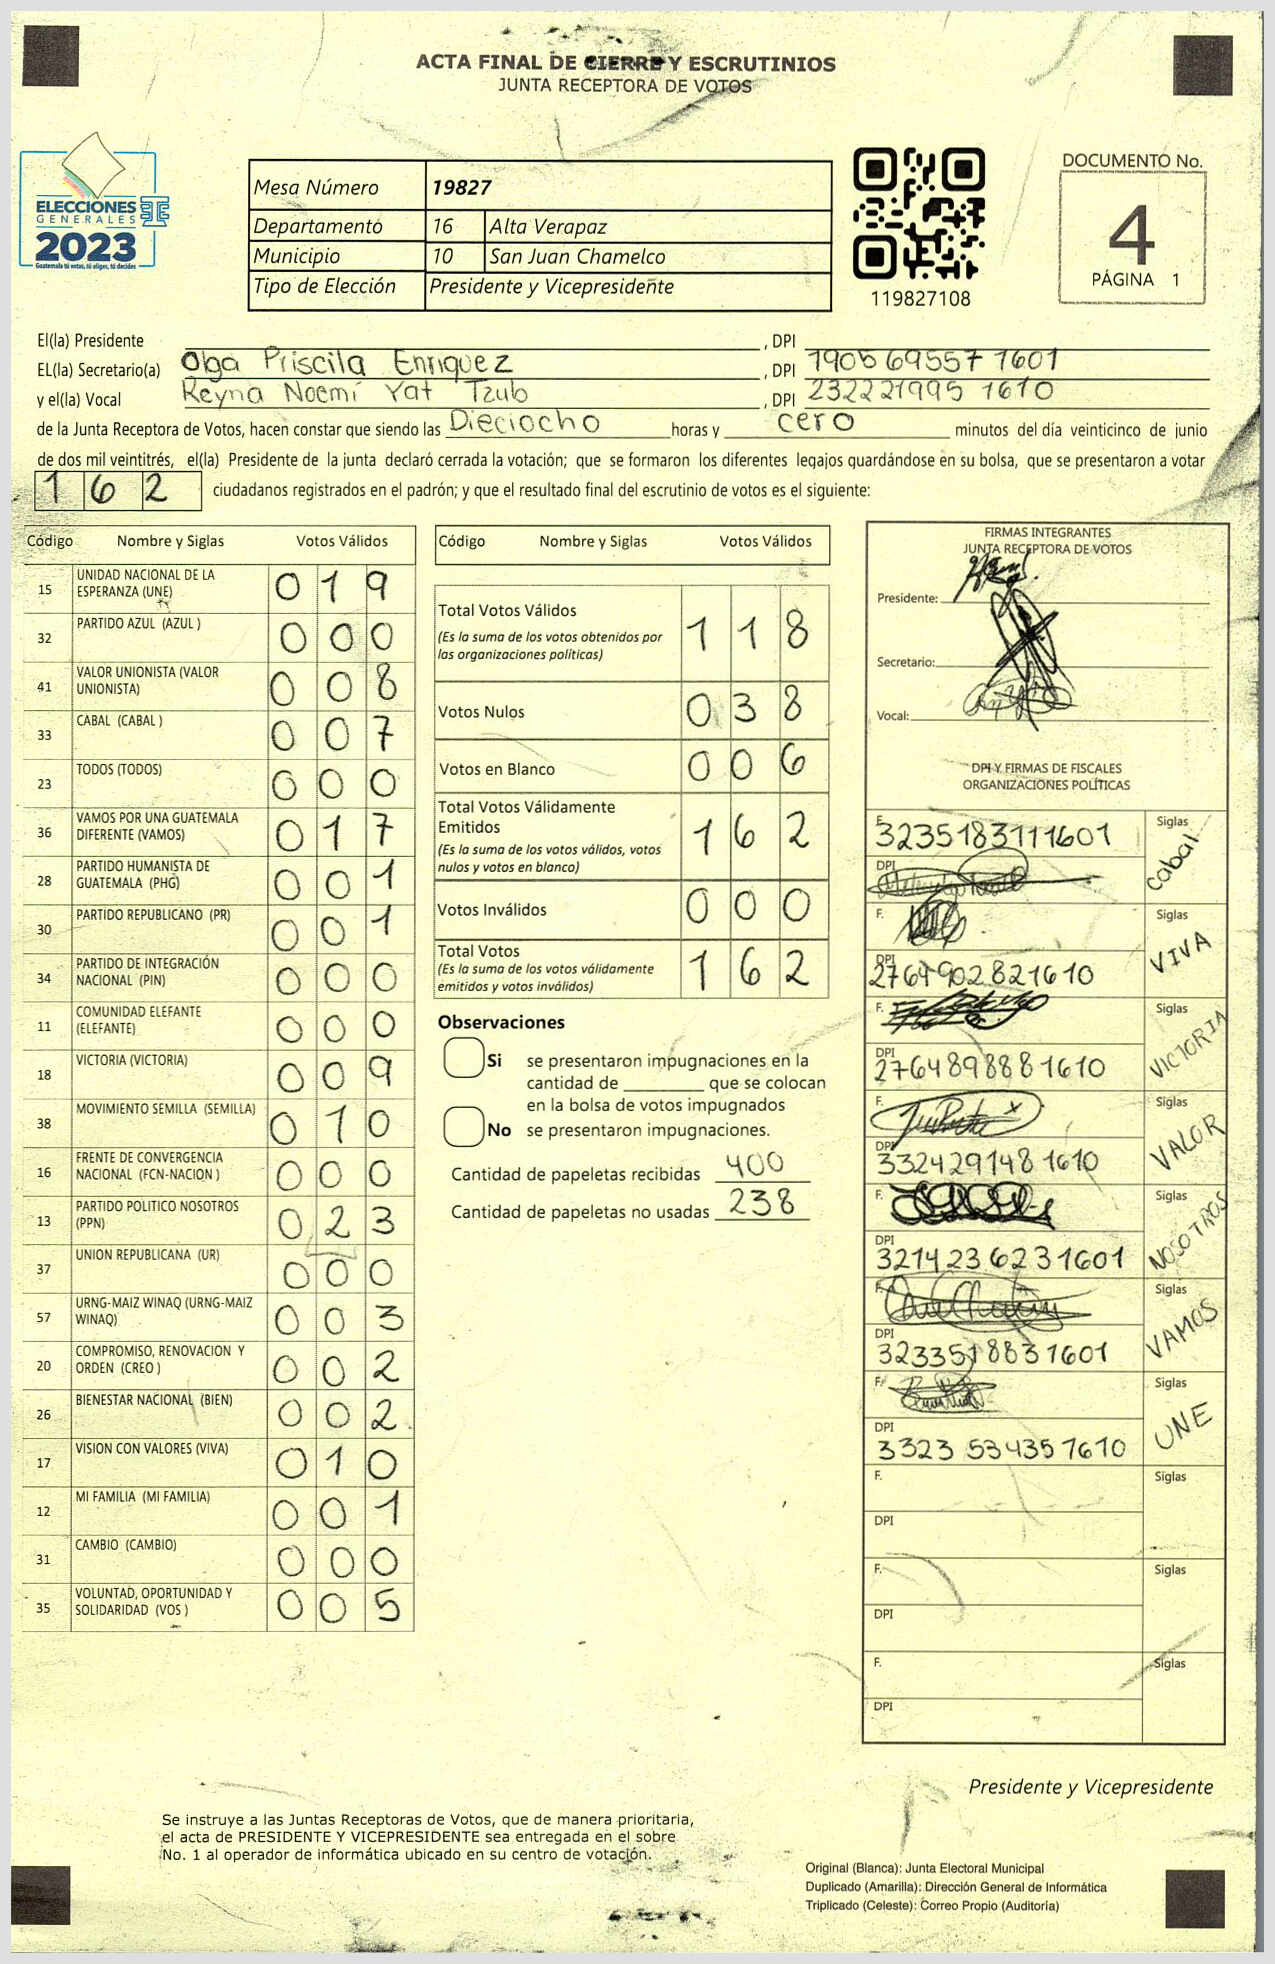 ACTA FINAL DE CIERRE Y ESCRUTINIOS
JUNTA RECEPTORA DE VOTOS
ELECCIONES
GENERALES
2023
Guatemala tú votas, tú eliges, tú decides
Mesa Número 19827
Departamento 16 Alta Verapaz
Municipio 10 San Juan Chamelco
Tipo de Elección Presidente y Vicepresidente
119827108
DOCUMENTO No.
4
PÁGINA 1
El(la) Presidente , DPI
EL(la) Secretario(a) Olga Priscila Enriquez , DPI 1905 69557 1601
y el(la) Vocal Reyna Noemí Yat Tzub , DPI 232221995 1610
de la Junta Receptora de Votos, hacen constar que siendo las Dieciocho horas y cero minutos del día veinticinco de junio
de dos mil veintitrés, el(la) Presidente de la junta declaró cerrada la votación; que se formaron los diferentes legajos guardándose en su bolsa, que se presentaron a votar
162 ciudadanos registrados en el padrón; y que el resultado final del escrutinio de votos es el siguiente:
Código Nombre y Siglas Votos Válidos
15 UNIDAD NACIONAL DE LA ESPERANZA (UNE) 019
32 PARTIDO AZUL (AZUL ) 000
41 VALOR UNIONISTA (VALOR UNIONISTA) 008
33 CABAL (CABAL ) 007
23 TODOS (TODOS) 000
36 VAMOS POR UNA GUATEMALA DIFERENTE (VAMOS) 017
28 PARTIDO HUMANISTA DE GUATEMALA (PHG) 001
30 PARTIDO REPUBLICANO (PR) 001
34 PARTIDO DE INTEGRACIÓN NACIONAL (PIN) 000
11 COMUNIDAD ELEFANTE (ELEFANTE) 000
18 VICTORIA (VICTORIA) 009
38 MOVIMIENTO SEMILLA (SEMILLA) 010
16 FRENTE DE CONVERGENCIA NACIONAL (FCN-NACION ) 000
13 PARTIDO POLITICO NOSOTROS (PPN) 023
37 UNION REPUBLICANA (UR) 000
57 URNG-MAIZ WINAQ (URNG-MAIZ WINAQ) 003
20 COMPROMISO, RENOVACION Y ORDEN (CREO ) 002
26 BIENESTAR NACIONAL (BIEN) 002
17 VISION CON VALORES (VIVA) 010
12 MI FAMILIA (MI FAMILIA) 001
31 CAMBIO (CAMBIO) 000
35 VOLUNTAD, OPORTUNIDAD Y SOLIDARIDAD (VOS ) 005
Código Nombre y Siglas Votos Válidos
Total Votos Válidos 118
(Es la suma de los votos obtenidos por
las organizaciones políticas)
Votos Nulos 038
Votos en Blanco 006
Total Votos Válidamente
Emitidos 162
(Es la suma de los votos válidos, votos
nulos y votos en blanco)
Votos Inválidos 000
Total Votos 162
(Es la suma de los votos válidamente
emitidos y votos inválidos)
Observaciones
Si se presentaron impugnaciones en la
cantidad de ________ que se colocan
en la bolsa de votos impugnados
No se presentaron impugnaciones.
Cantidad de papeletas recibidas 400
Cantidad de papeletas no usadas 238
FIRMAS INTEGRANTES
JUNTA RECEPTORA DE VOTOS
Presidente:
Secretario:
Vocal:
DPI Y FIRMAS DE FISCALES
ORGANIZACIONES POLÍTICAS
F. 3235183111601 Siglas
DPI Cabal
F. Siglas
DPI 2764902821610 VIVA
F. Siglas
DPI 2764898881610 VICTORIA
F. Siglas
DPI 332429148 1610 VALOR
F. Siglas
DPI 3214236231601 NOSOTROS
F. Siglas
DPI 3233518831601 VAMOS
F. Siglas
DPI 3323 534351610 UNE
F. Siglas
DPI
F. Siglas
DPI
F. Siglas
DPI
Presidente y Vicepresidente
Se instruye a las Juntas Receptoras de Votos, que de manera prioritaria,
el acta de PRESIDENTE Y VICEPRESIDENTE sea entregada en el sobre
No. 1 al operador de informática ubicado en su centro de votación.
Original (Blanca): Junta Electoral Municipal
Duplicado (Amarilla): Dirección General de Informática
Triplicado (Celeste): Correo Propio (Auditoría)